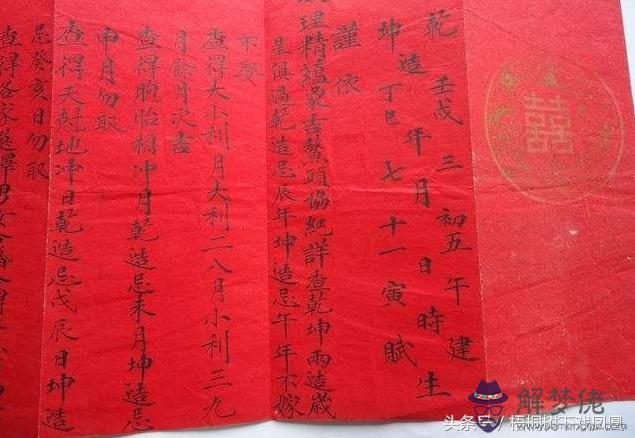 囍
乾 壬戌 三 初五 午 建
造 年 月 日 時 生
坤 丁巳 七 十一 寅 賦
謹依
理精蘊象吉鰲頭協紀詳查乾坤兩造歲
星俱過乾造忌辰年坤造忌午年不嫁
不娶
查得大小利月大利二八月小利三九
月餘月次吉
查得胞胎相冲月乾造忌未月坤造忌
申月勿取
查得天尅地冲日乾造忌戊辰日坤造
忌癸亥日勿取
查得各家選擇男女合婚
头条号
解梦佬